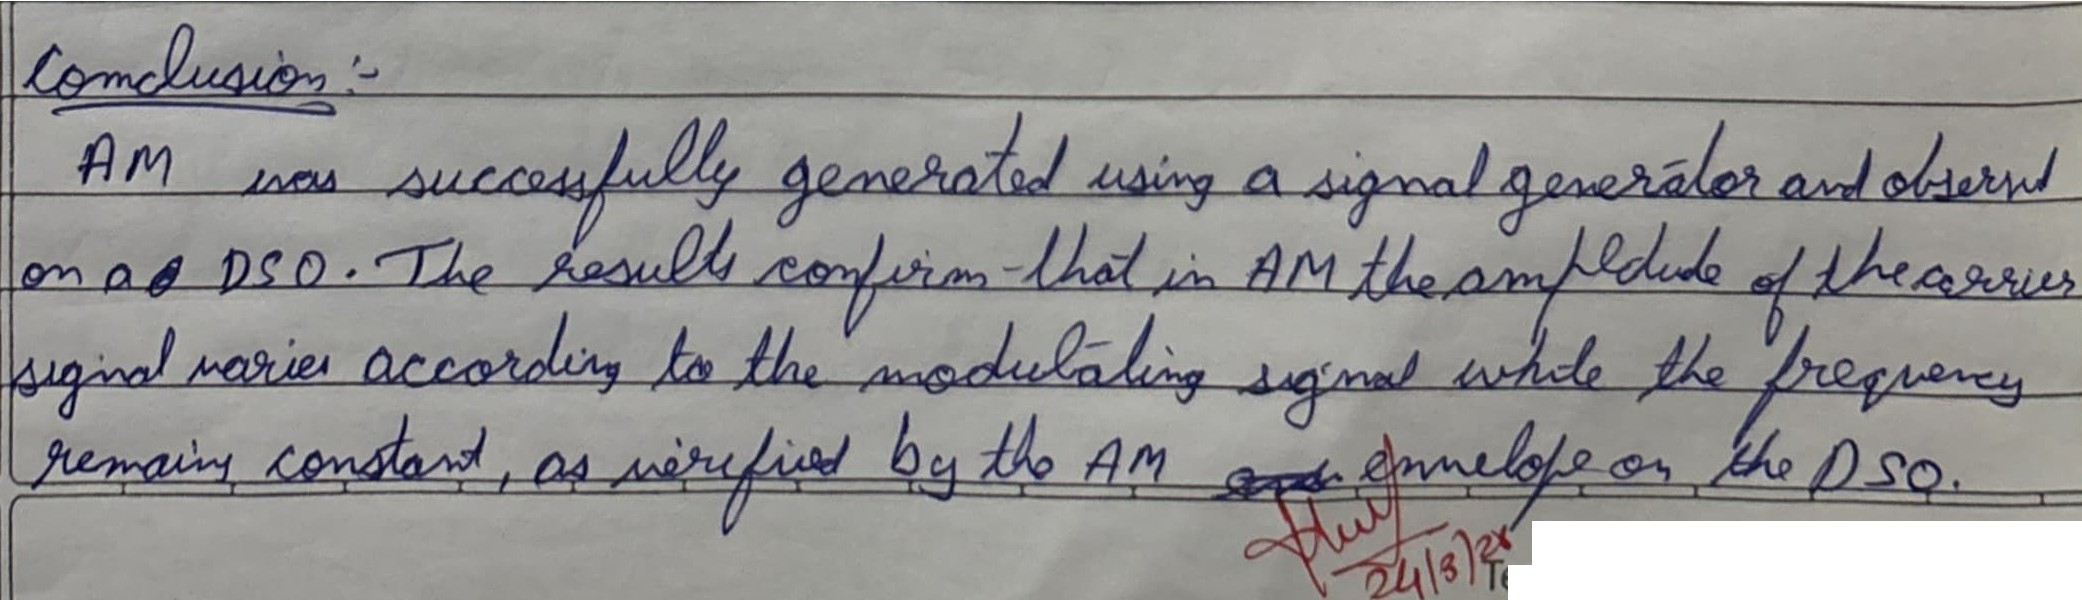 Conclusion :-
AM was successfully generated using a signal generator and observed
on a DSO. The results confirm that in AM the amplitude of the carrier
signal varies according to the modulating signal while the frequency
remains constant, as verified by the AM envelope on the DSO.
24/3/2